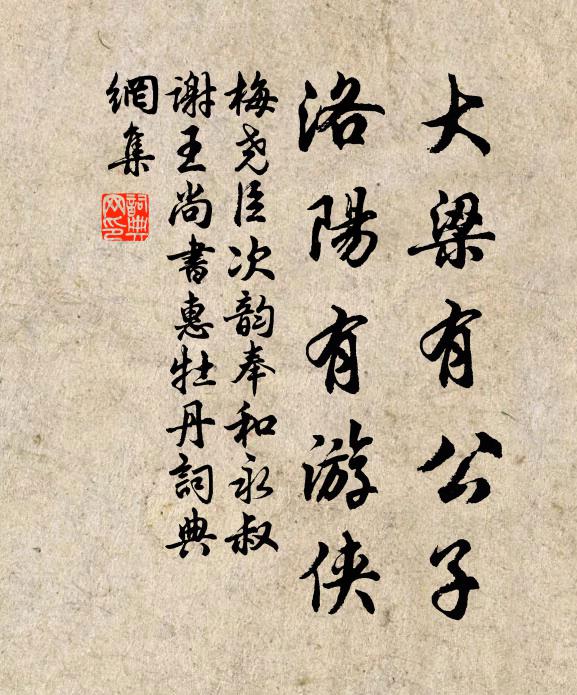 大梁有公子
洛陽有游俠
梅堯臣次韵奉和永叔
謝王尚書惠牡丹詞典
網集
詞典網印